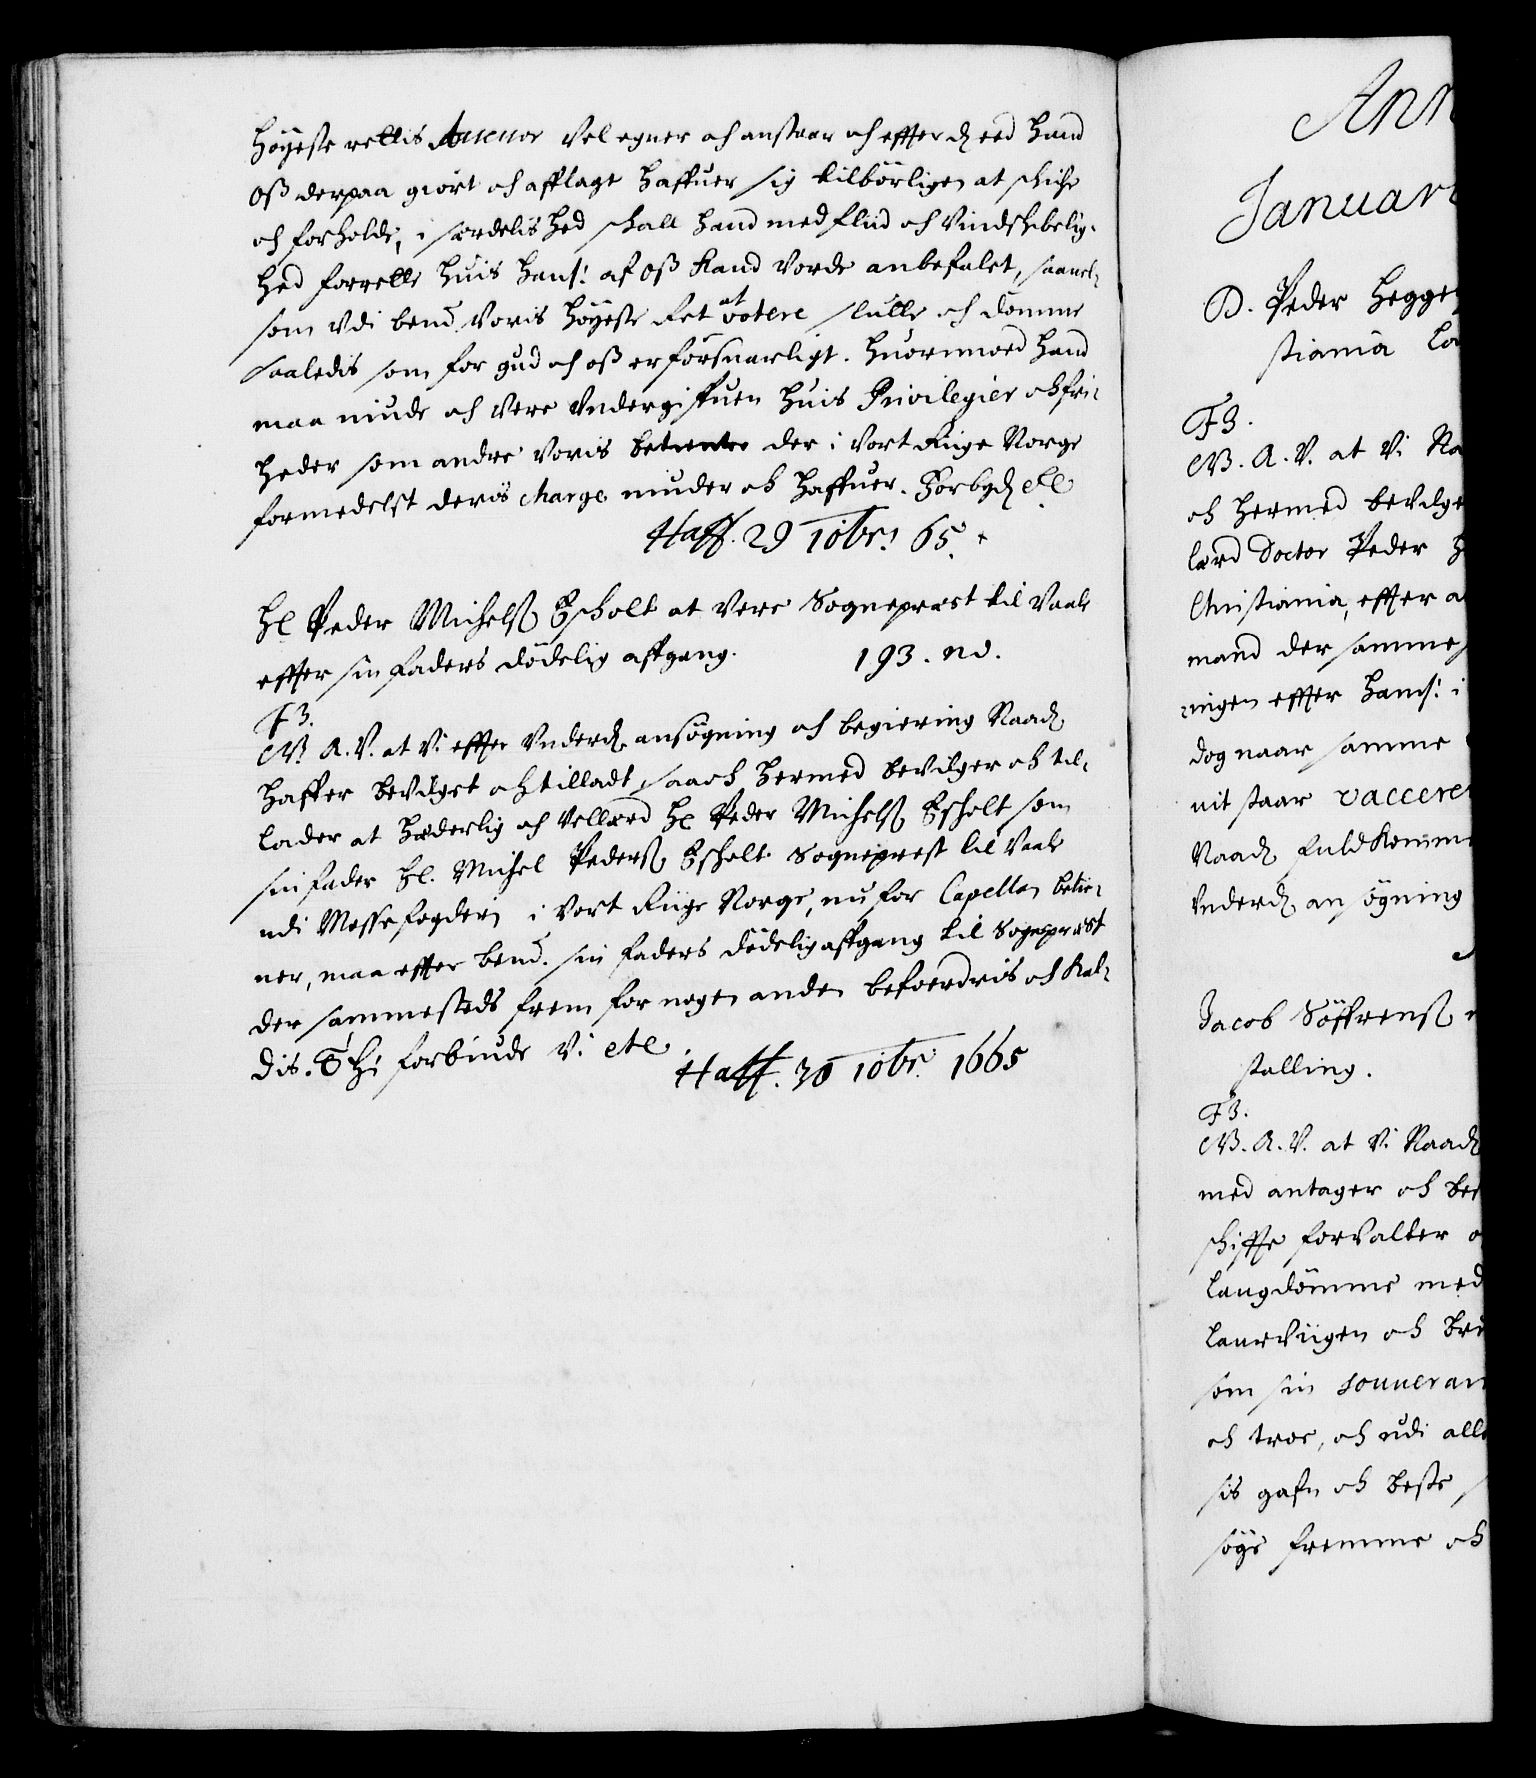 Höyeste rettis Assessor vel egner och anstaar och effter dend eed hand
Oß derpaa giort och afflagt haffuer sig tilbörligen at schiche
och forholde, i særdelished schall hand med fliid och Vindschibelig-
hed forrette huis hans: af oß kand vorde anbefalet, saauel-
som vdi bemt. voris Höyeste Ret at votere slutte och dömme
saaledis som for gud och oß er forsuarligt. Huorimoed hand
maa niude och vere vndergiffuen huis Privilegier och fri-
heder som andre voris betiente der i vort Riige Norge
formedelst deris charge niuder och haffuer. Forbydendis etc
Haff. 29 10br: 65.
Hr Peder Michelsß Escholt at vere Sogneprest til Vaale
effter sin faders dödelig affgang. 193. no.
F3.
G.V. A.V. at vi effter vnderd. ansögning och begiering Naad.
haffer bevilget och tilladt, saa och hermed bevilger och til-
lader at hæderlig och Vellærd Hr Peder Michelsß Escholt som
sin fader Hr. Michel Pedersß Escholt Sogneprest til Vaale
udi Mossefogderi i vort Riige Norge, nu for Capellan betie-
ner, maa effter bemt. sin faders dödelig affgang til Sogneprest
der sammesteds frem for nogen anden befoerdris och kal-
dis. Thi forbiude Vi etc.
Haff. 30 10br. 1665
Ann
Januari
D. Peder Hegge
stiania
F3.
G.V. A.V. at Vi Na
och hermed bevilge
lærd Doctor Peder H
Christiania, effter a
mand der samme
ningen effter hans: i
dog naar samme
nit staar vaccere
Naad. fuldkomme
Vnderd. ansögning
Jacob Söffrensß
stalling.
F3.
G.V. A.V. at Vi Naad.
med antager och be
schiffe forvalter o
laugdömme med
laurviigen och br
som sin souueran
och troe, och udi alle
sis gafn och beste
söge fremme och